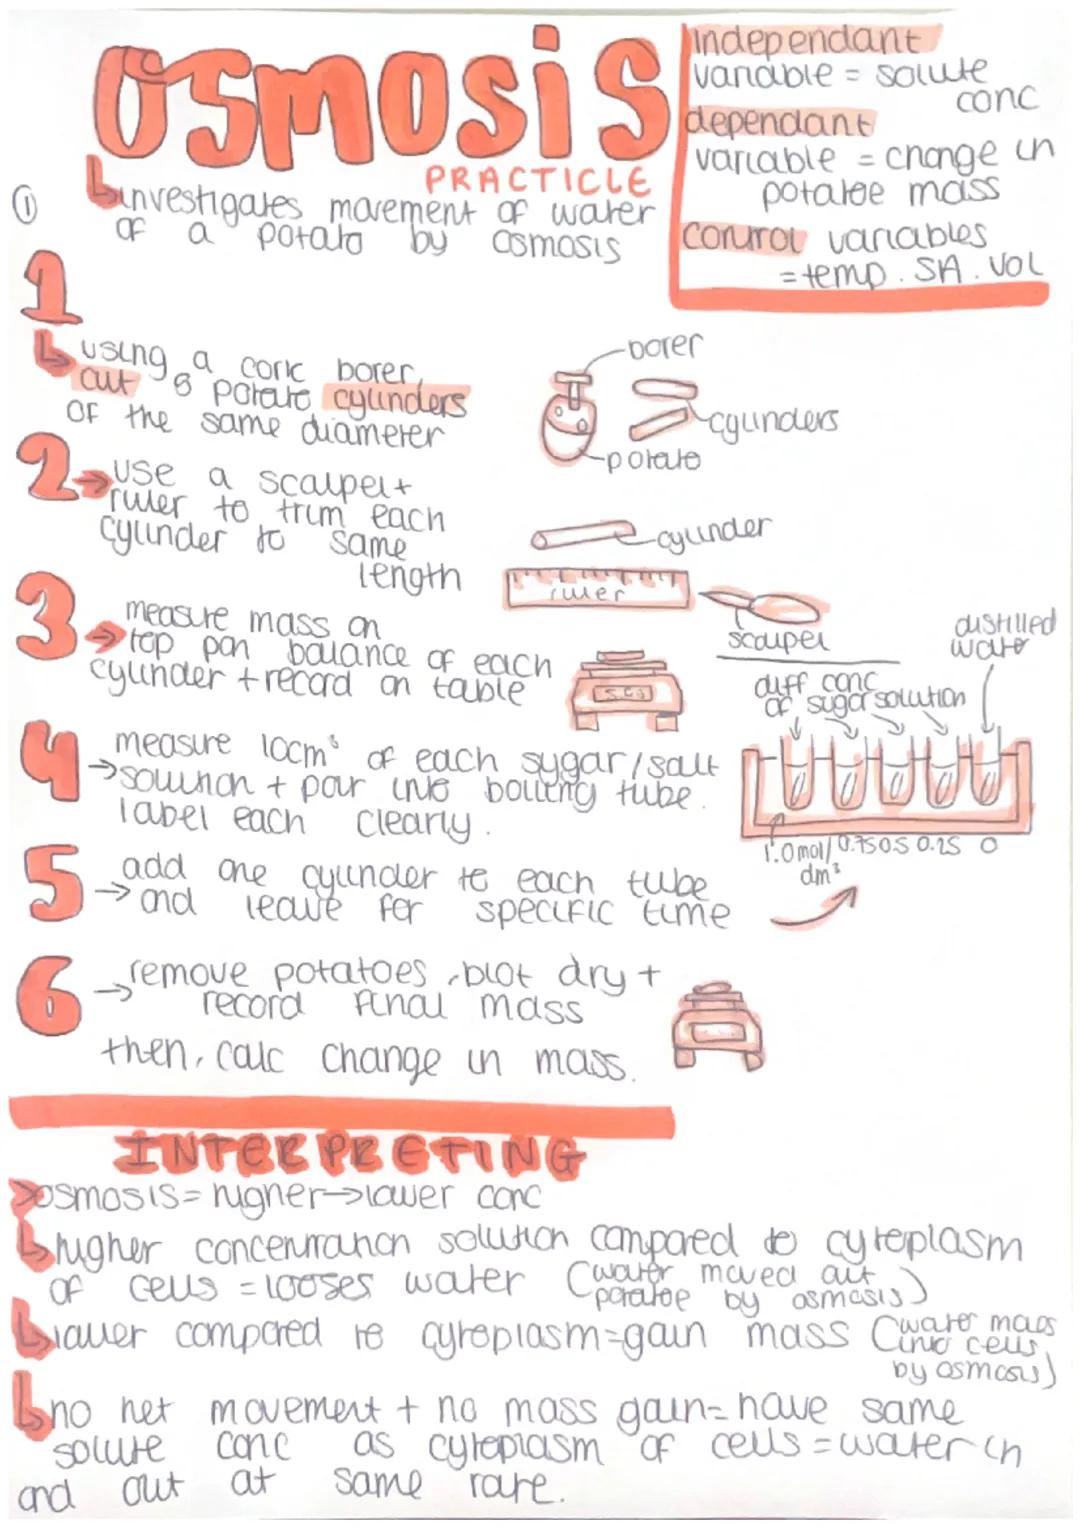 OSMOSIS
PRACTICLE
independant
variable = solute
conc
dependant
variable = change in
potatoe mass
control variables
= temp. SA. Vol
① investigates movement of water
of a potato by osmosis
1
using a cork borer,
cut 5 potato cylinders
of the same diameter
borer
cylinders
potato
2 → use a scalpel +
ruler to trim each
cylinder to same
length
cylinder
ruler
scalpel
3 → measure mass on
top pan balance of each
cylinder + record on table
distilled
water
diff conc
of sugar solution
4 → measure 10cm³ of each sugar/salt
solution + pour into boiling tube.
label each clearly.
1.0mol/ 0.75 0.5 0.25 0
dm³
5 → add one cylinder to each tube
and leave for specific time
6 → remove potatoes, blot dry +
record final mass
then, calc change in mass.
INTERPRETING
>osmosis = higher → lower conc
higher concentration solution compared to cytoplasm
of cells = looses water (water moved out
potatoe by osmosis)
lower compared to cytoplasm = gain mass (water moves
into cells
by osmosis)
no net movement + no mass gain = have same
solute conc as cytoplasm of cells = water in
and out at same rate.